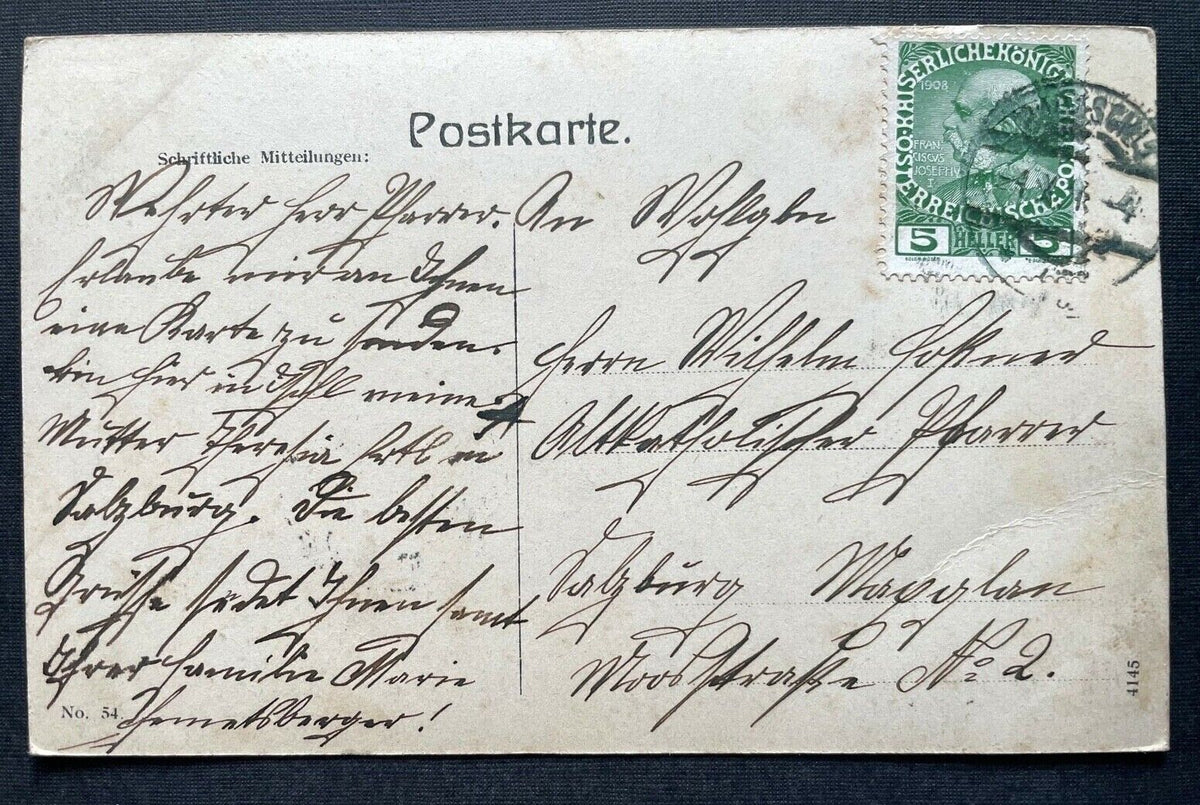 Postkarte.
Schriftliche Mitteilungen:
Wehrter Herr Pfarrer.
Erlaube mir an Ihnen
eine Karte zu senden.
bin hier in Ischl meine
Mutter Theresia Ertl in
Salzburg. Die besten
Grüsse sedet Ihnen samt
Ihrer Familie Marie
No. 54.
An Wohlgebn
Herrn Wilhelm
Altkatholischer Pfarrer
Salzburg Maxglan
Moosstraße No 2.
4145
KAISERLICHEKÖNIGL
ÖSTERREICHISCHE POST
1908
FRAN
CISCVS
JOSEPHV
I
5 HELLER 5